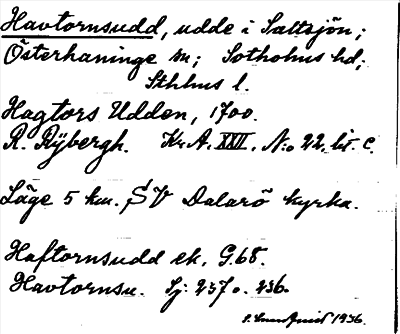 Havtornsudd, udde i Saltsjön;
Österhaninge sn; Sotholms hd;
Sthlms l.
Hagtors Udden, 1700.
R. Rÿbergh. Kr.A. XXII. N:o 22, lit. C.
Läge 5 km. SV Dalarö kyrka.
Haftornsudd ek. G.68.
Havtornsu. Sj: 237 o. 236.
1936.